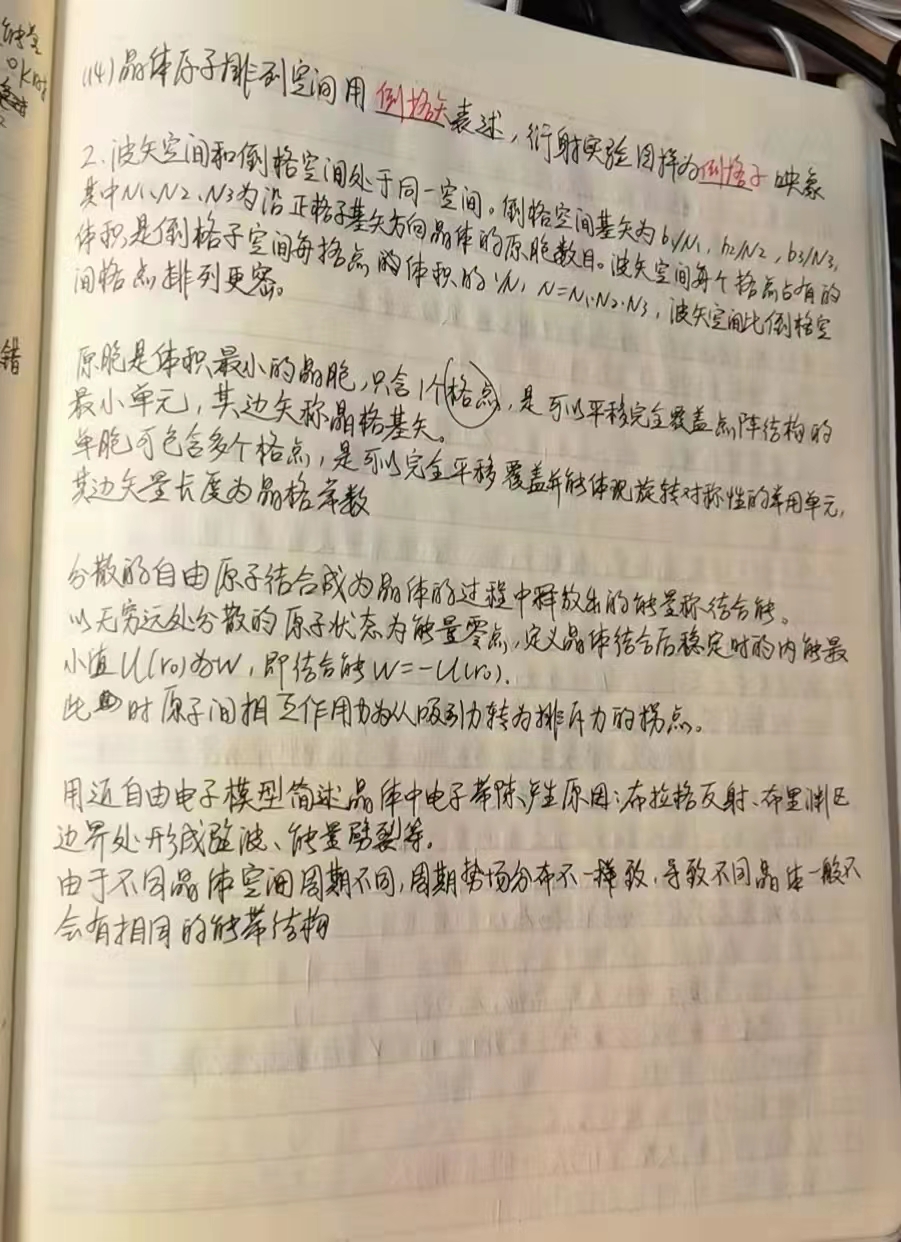 能量
0K时
错
(14)晶体原子排列空间用倒格矢表述，衍射实验图样为倒格子映象
2.波矢空间和倒格空间处于同一空间。倒格空间基矢为b1/N1，b2/N2，b3/N3，
其中N1、N2、N3为沿正格子基矢方向晶体的原胞数目。波矢空间每个格点占有的
体积是倒格子空间每格点的体积的1/N，N=N1·N2·N3，波矢空间比倒格空
间格点排列更密。
原胞是体积最小的晶胞，只含1个格点，是可以平移完全覆盖点阵结构的
最小单元，其边矢称晶格基矢。
单胞可包含多个格点，是可以完全平移覆盖并能体现旋转对称性的常用单元，
其边矢量长度为晶格常数
分散的自由原子结合成为晶体的过程中释放出的能量称结合能。
以无穷远处分散的原子状态为能量零点，定义晶体结合后稳定时的内能最
小值U(r0)为W，即结合能W=-U(r0).
此时原子间相互作用力为从吸引力转为排斥力的拐点。
用近自由电子模型简述晶体中电子带隙产生原因：布拉格反射、布里渊区
边界处形成驻波、能量劈裂等。
由于不同晶体空间周期不同，周期势场分布不一样致，导致不同晶体一般不
会有相同的能带结构